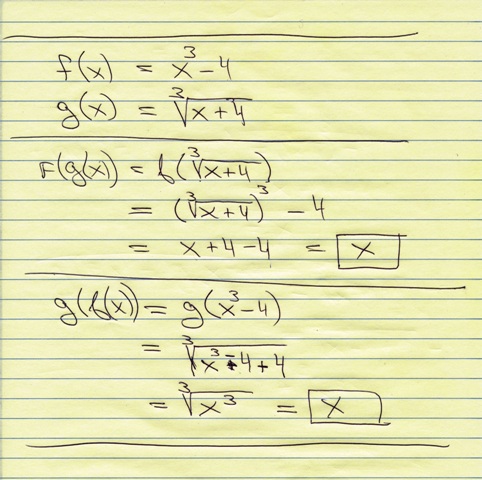 f(x) = x³ - 4
g(x) = ∛(x + 4)
F(g(x)) = f(∛(x + 4))
= (∛(x + 4))³ - 4
= x + 4 - 4 = x
g(f(x)) = g(x³ - 4)
= ∛(x³ - 4 + 4)
= ∛(x³) = x